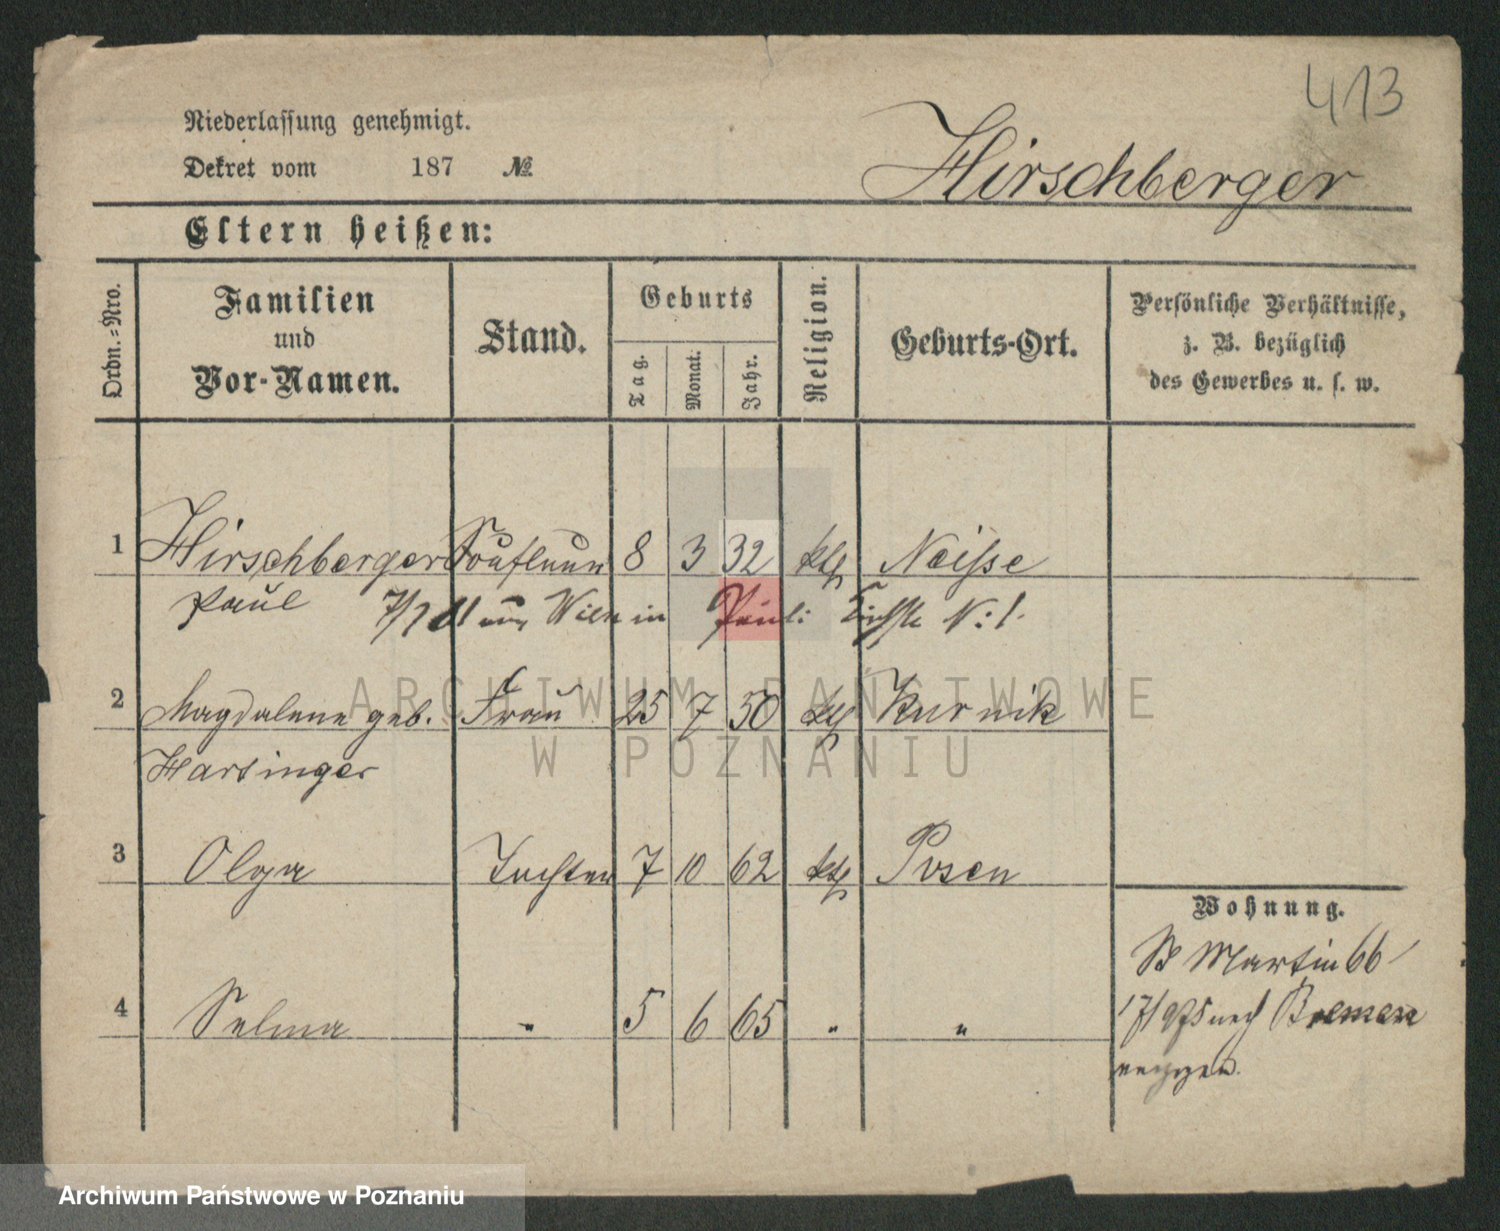 413
Niederlassung genehmigt.
Dekret vom 187 №
Hirschberger
Eltern heißen:
Ordn.-Nro.
Familien und Vor-Namen.
Stand.
Geburts
Tag.
Monat.
Jahr.
Religion.
Geburts-Ort.
Persönliche Verhältnisse,
z. B. bezüglich
des Gewerbes u. s. w.
1 Hirschberger Kaufmann 8 3 32 kth Neisse
Paul 7/7 81 aus Wien in N: 1.
2 Magdalene geb. Frau 25 7 50 kth Kurnik
Hartinger
3 Olga Tochter 7 10 62 kth Posen
4 Selma " 5 6 65 " "
Wohnung.
St Martin 66
17/9 75 nach Bremen
verzogen.
ARCHIWUM PAŃSTWOWE
W POZNANIU
Archiwum Państwowe w Poznaniu